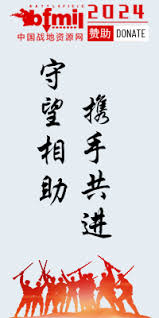 BATTLEFIELD
bfmil
2024
中国战地资源网
赞助 DONATE
守望相助
携手共进